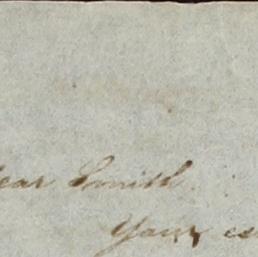 ear Smith
Your